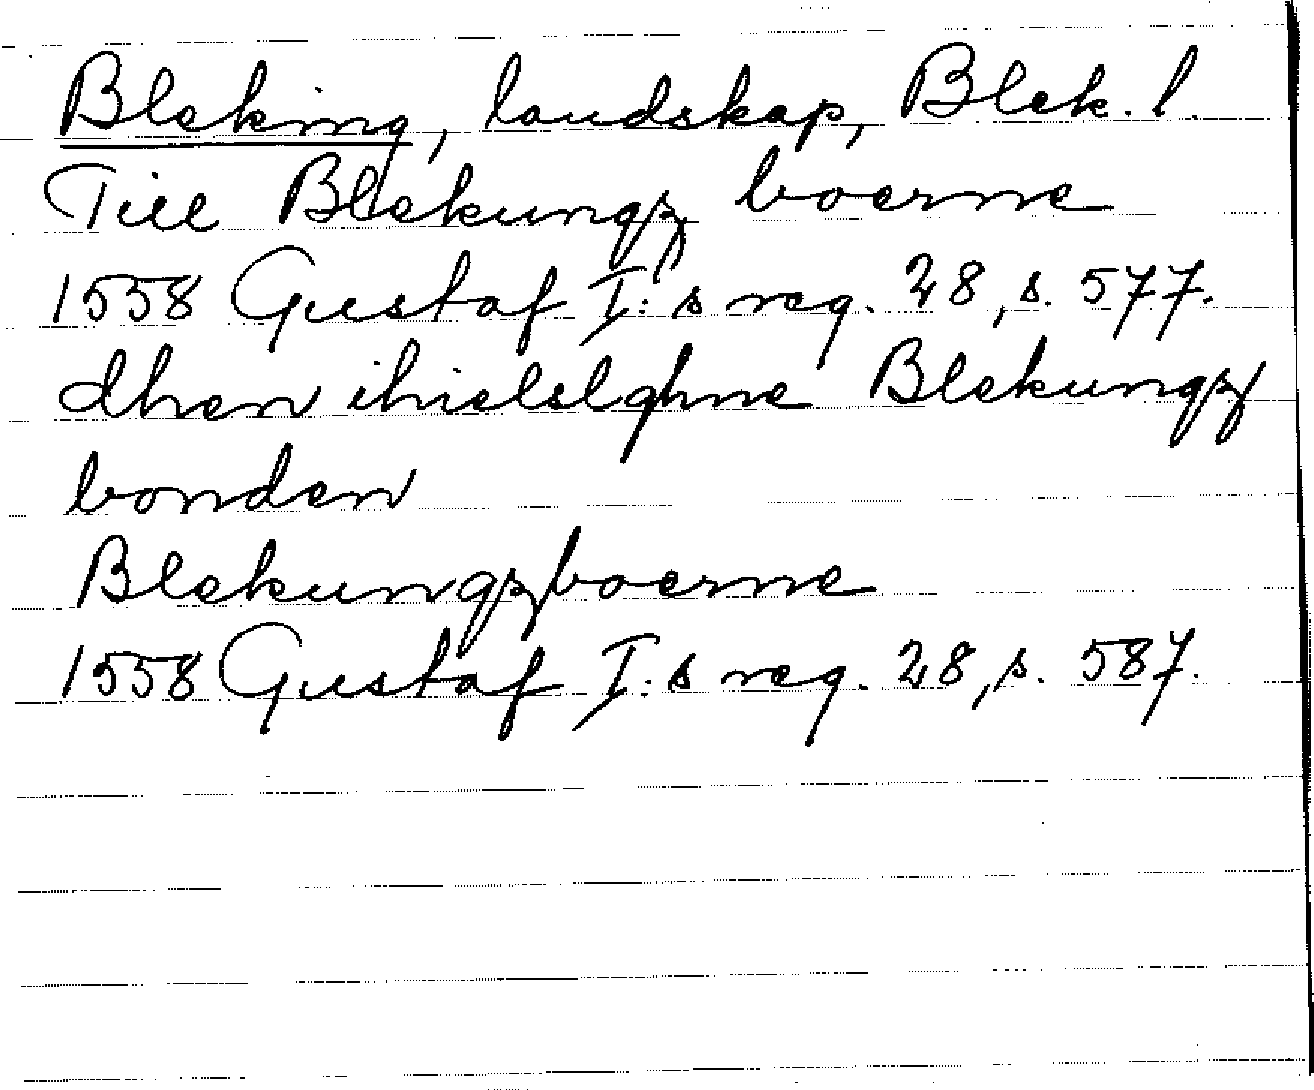 Bleking, landskap, Blek. l.
Till Blekungz boerne
1558 Gustaf I:s reg. 28, s. 577.
dhen Blekungz
bonden
Blekungzboerne
1558 Gustaf I:s reg. 28, s. 587.